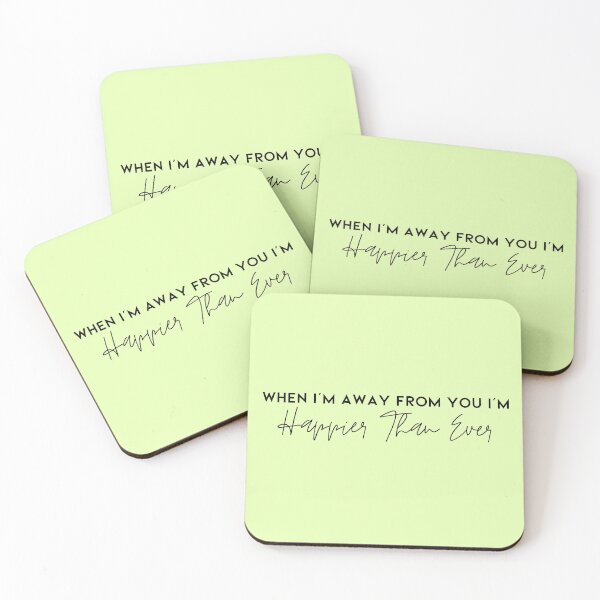 WHEN I'M AWAY FROM YOU
Ha an Ev
WHEN I'M AWAY FROM YOU I'M
Happier Than Ever
WHEN I'M AWAY FROM YOU I'M
Happier Than Ever
WHEN I'M AWAY FROM YOU I'M
Happier Than Ever